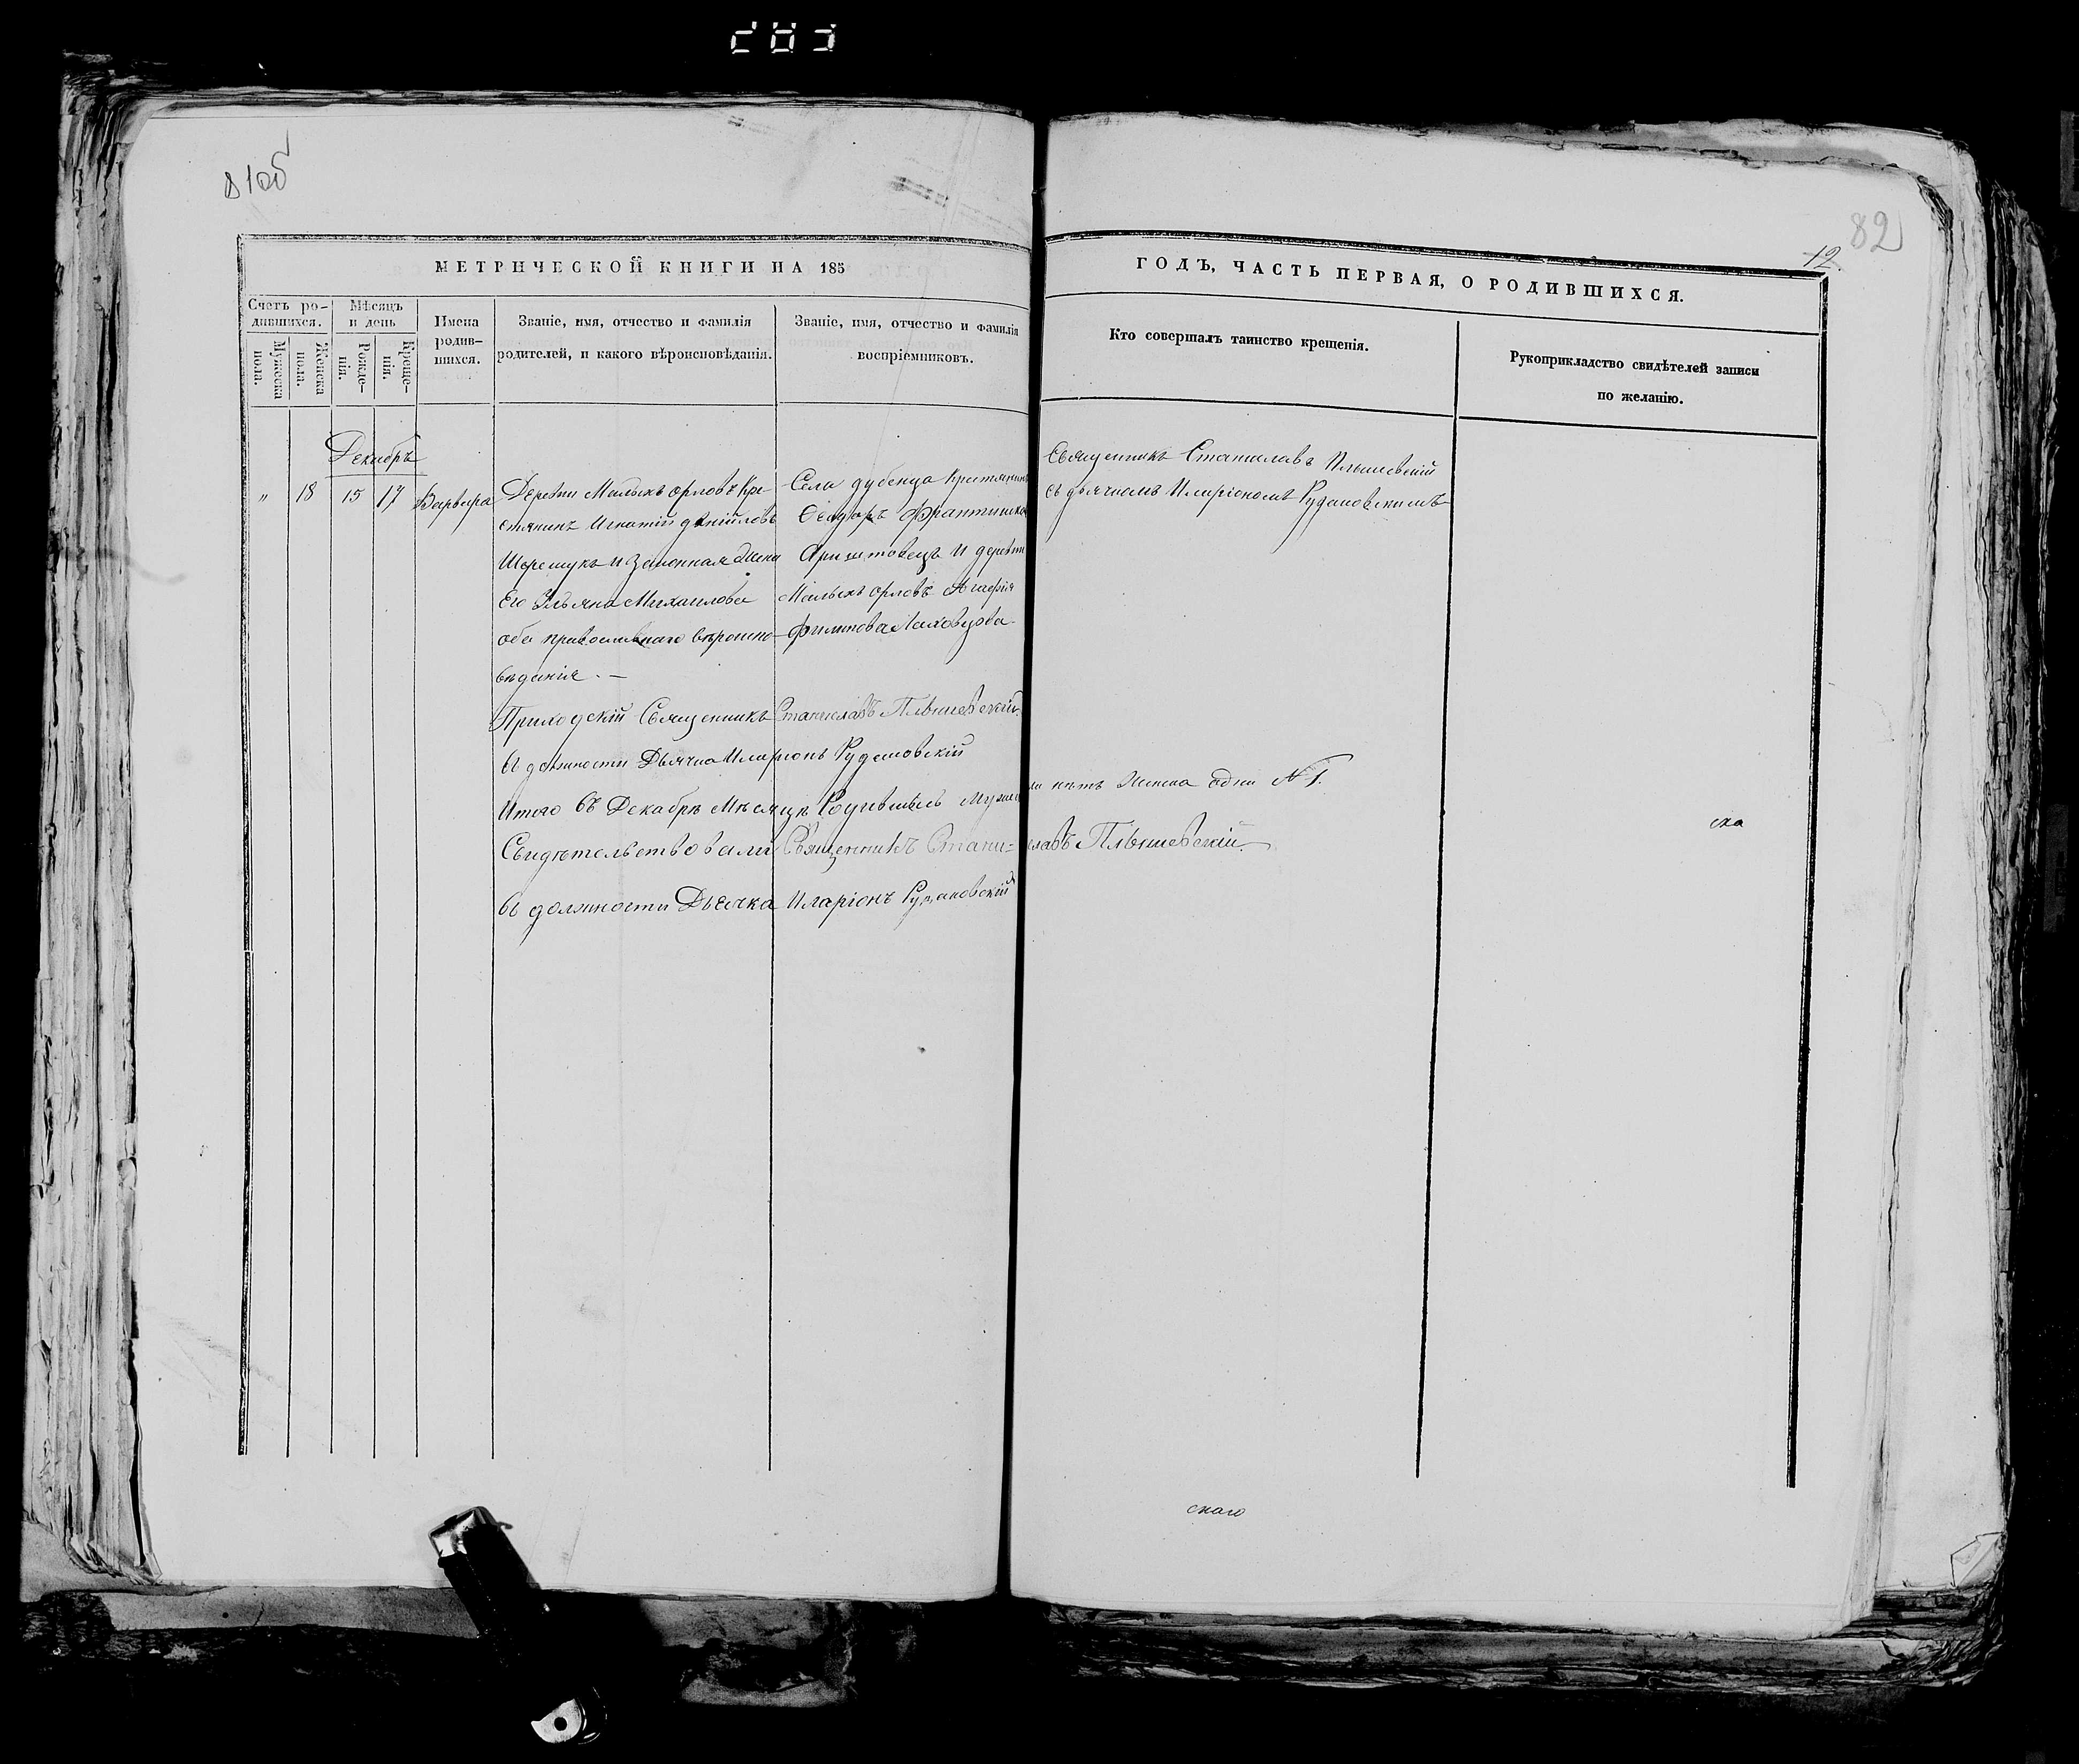 81об
82
12.
МЕТРИЧЕСКОЙ КНИГИ НА 185
ГОДЪ, ЧАСТЬ ПЕРВАЯ, О РОДИВШИХСЯ.
Счетъ ро-
дившихся.
Мужеска
пола.
Женска
пола.
Мѣсяцъ
и день
Рожде-
нія.
Креще-
нія.
Имена
родив-
шихся.
Званіе, имя, отчество и фамилія
родителей, и какого вѣроисповѣданія.
Званіе, имя, отчество и фамилія
воспріемниковъ.
Кто совершалъ таинство крещенія.
Рукоприкладство свидѣтелей записи
по желанію.
Декабрь
" 18 15 17 Варвара
Деревни Малыхъ орловъ Кре-
стянинъ Игнатій
и законная жена
Его Ульяна Михайлова
оба православнаго вѣроиспо-
вѣданія. —
Села дубенца
Феодоръ
и деревни
Малыхъ орловъ Агафія
Филипова
Священникъ Станиславъ
съ дьячкомъ Иларіономъ
Приходскій Священникъ Станиславъ
въ должности Дьячка Иларіонъ
Итого въ Декабрѣ Мѣсяцѣ Родившихъ нѣтъ Женска одна №1.
Свидѣтельствовали Священникъ Стани=славъ
въ должности Дьячка Иларіонъ
ска
скаго